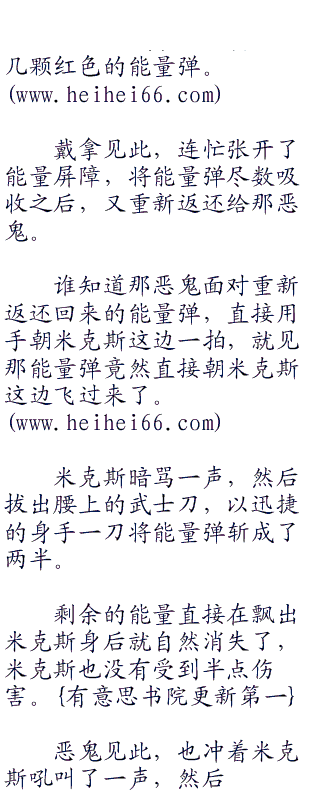 几颗红色的能量弹。
(www.heihei66.com)
戴拿见此，连忙张开了
能量屏障，将能量弹尽数吸
收之后，又重新返还给那恶
鬼。
谁知道那恶鬼面对重新
返还回来的能量弹，直接用
手朝米克斯这边一拍，就见
那能量弹竟然直接朝米克斯
这边飞过来了。
(www.heihei66.com)
米克斯暗骂一声，然后
拔出腰上的武士刀，以迅捷
的身手一刀将能量弹斩成了
两半。
剩余的能量直接在飘出
米克斯身后就自然消失了，
米克斯也没有受到半点伤
害。{有意思书院更新第一}
恶鬼见此，也冲着米克
斯吼叫了一声，然后